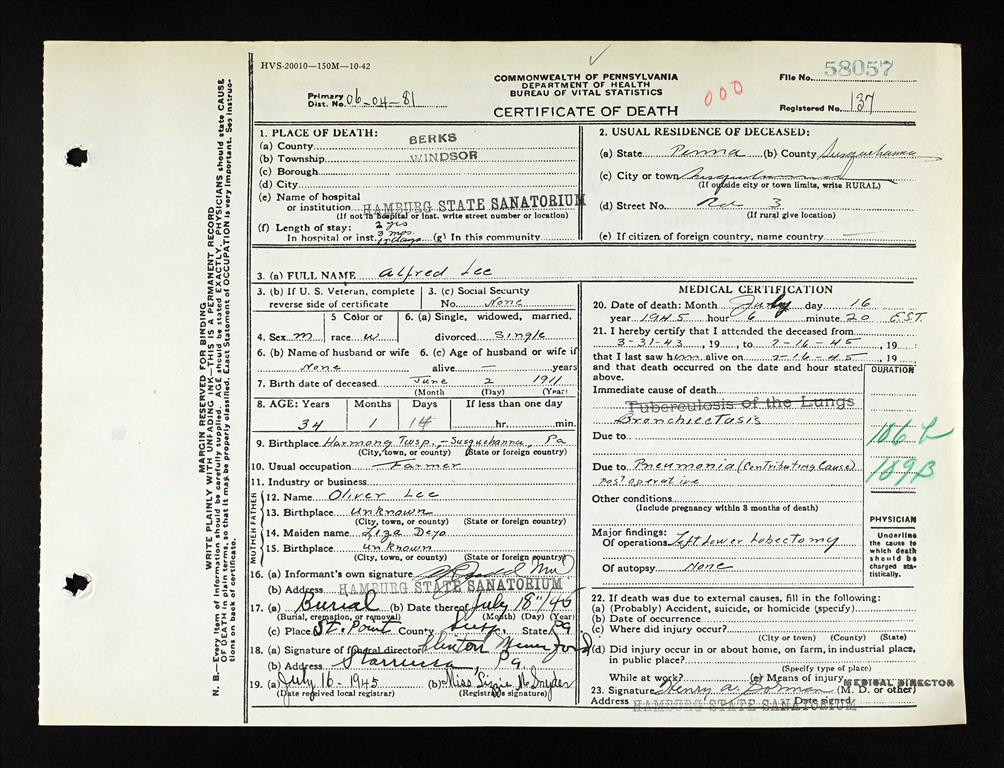 HVS-20010—150M—10-42
COMMONWEALTH OF PENNSYLVANIA
DEPARTMENT OF HEALTH
BUREAU OF VITAL STATISTICS
CERTIFICATE OF DEATH
000
File No. 58057
Primary
Dist. No. 06-04-81
Registered No. 137
MARGIN RESERVED FOR BINDING
WRITE PLAINLY WITH UNFADING INK—THIS IS A PERMANENT RECORD
N. B.—Every item of information should be carefully supplied. AGE should be stated EXACTLY. PHYSICIANS should state CAUSE
OF DEATH in plain terms, so that it may be properly classified. Exact Statement of OCCUPATION is very important. See instruc-
tions on back of certificate.
1. PLACE OF DEATH:
(a) County BERKS
(b) Township WINDSOR
(c) Borough
(d) City
(e) Name of hospital
or institution HAMBURG STATE SANATORIUM
(If not in hospital or inst. write street number or location)
(f) Length of stay: 2 yrs
In hospital or inst. 3 mos. 15 days (g) In this community
2. USUAL RESIDENCE OF DECEASED:
(a) State Penna (b) County Susquehanna
(c) City or town Susquehanna
(If outside city or town limits, write RURAL)
(d) Street No. 3
(If rural give location)
(e) If citizen of foreign country, name country —
3. (a) FULL NAME Alfred Lee
3. (b) If U. S. Veteran, complete
reverse side of certificate
3. (c) Social Security
No. None
4. Sex M
5 Color or
race W
6. (a) Single, widowed, married,
divorced Single
6. (b) Name of husband or wife
None
6. (c) Age of husband or wife if
alive — years
7. Birth date of deceased June 2 1911
(Month (Day) (Year)
8. AGE: Years Months Days If less than one day
34 1 14 hr. min.
9. Birthplace Harmony Twsp.,-Susquehanna, Pa
(City, town, or county) (State or foreign country)
10. Usual occupation Farmer
11. Industry or business
FATHER
12. Name Oliver Lee
13. Birthplace Unknown
(City, town, or county) (State or foreign country)
MOTHER
14. Maiden name Liza Deyo
15. Birthplace Unknown
(City, town, or county) (State or foreign country)
16. (a) Informant's own signature
(b) Address HAMBURG STATE SANATORIUM
17. (a) Burial (b) Date thereof July 18"/45
(Burial, cremation, or removal) (Month) (Day) (Year)
(c) Place St. Point County Susq. State Pa
18. (a) Signature of funeral director Clinton
(b) Address Starrucca, Pa.
19. (a) July 16-1945 (b) Miss Lizzie M. Snyder
(Date received local registrar) (Registrar's signature)
MEDICAL CERTIFICATION
20. Date of death: Month July day 16
year 1945 hour 6 minute 20 EST.
21. I hereby certify that I attended the deceased from
3-31-43, 19 , to 7-16-45, 19 :
that I last saw him alive on 7-16-45, 19
and that death occurred on the date and hour stated
above.
DURATION
Immediate cause of death
Tuberculosis of the Lungs
Bronchiectasis
Due to
106 b
Due to Pneumonia (Contributing Cause)
post operative
109B
Other conditions
(Include pregnancy within 3 months of death)
PHYSICIAN
Underline
the cause to
which death
should be
charged sta-
tistically.
Major findings:
Of operations Left Lower Lobectomy
Of autopsy None
22. If death was due to external causes, fill in the following:
(a) (Probably) Accident, suicide, or homicide (specify)
(b) Date of occurrence
(c) Where did injury occur?
(City or town) (County) (State)
(d) Did injury occur in or about home, on farm, in industrial place,
in public place?
(Specify type of place)
While at work? (e) Means of injury
MEDICAL DIRECTOR
23. Signature Henry A. Gorman (M. D. or other)
Address HAMBURG STATE SANATORIUM Date signed